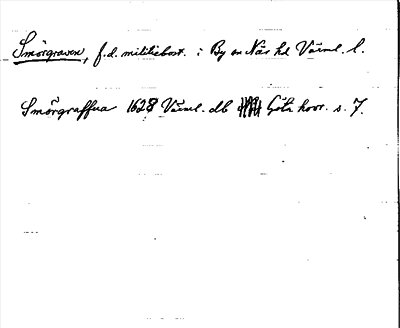 Smörgraven, f.d. militiebost. i By sn Näs hd Värml. l.
Smörgraffua 1628 Värml. db Göta hovr. s. 7.